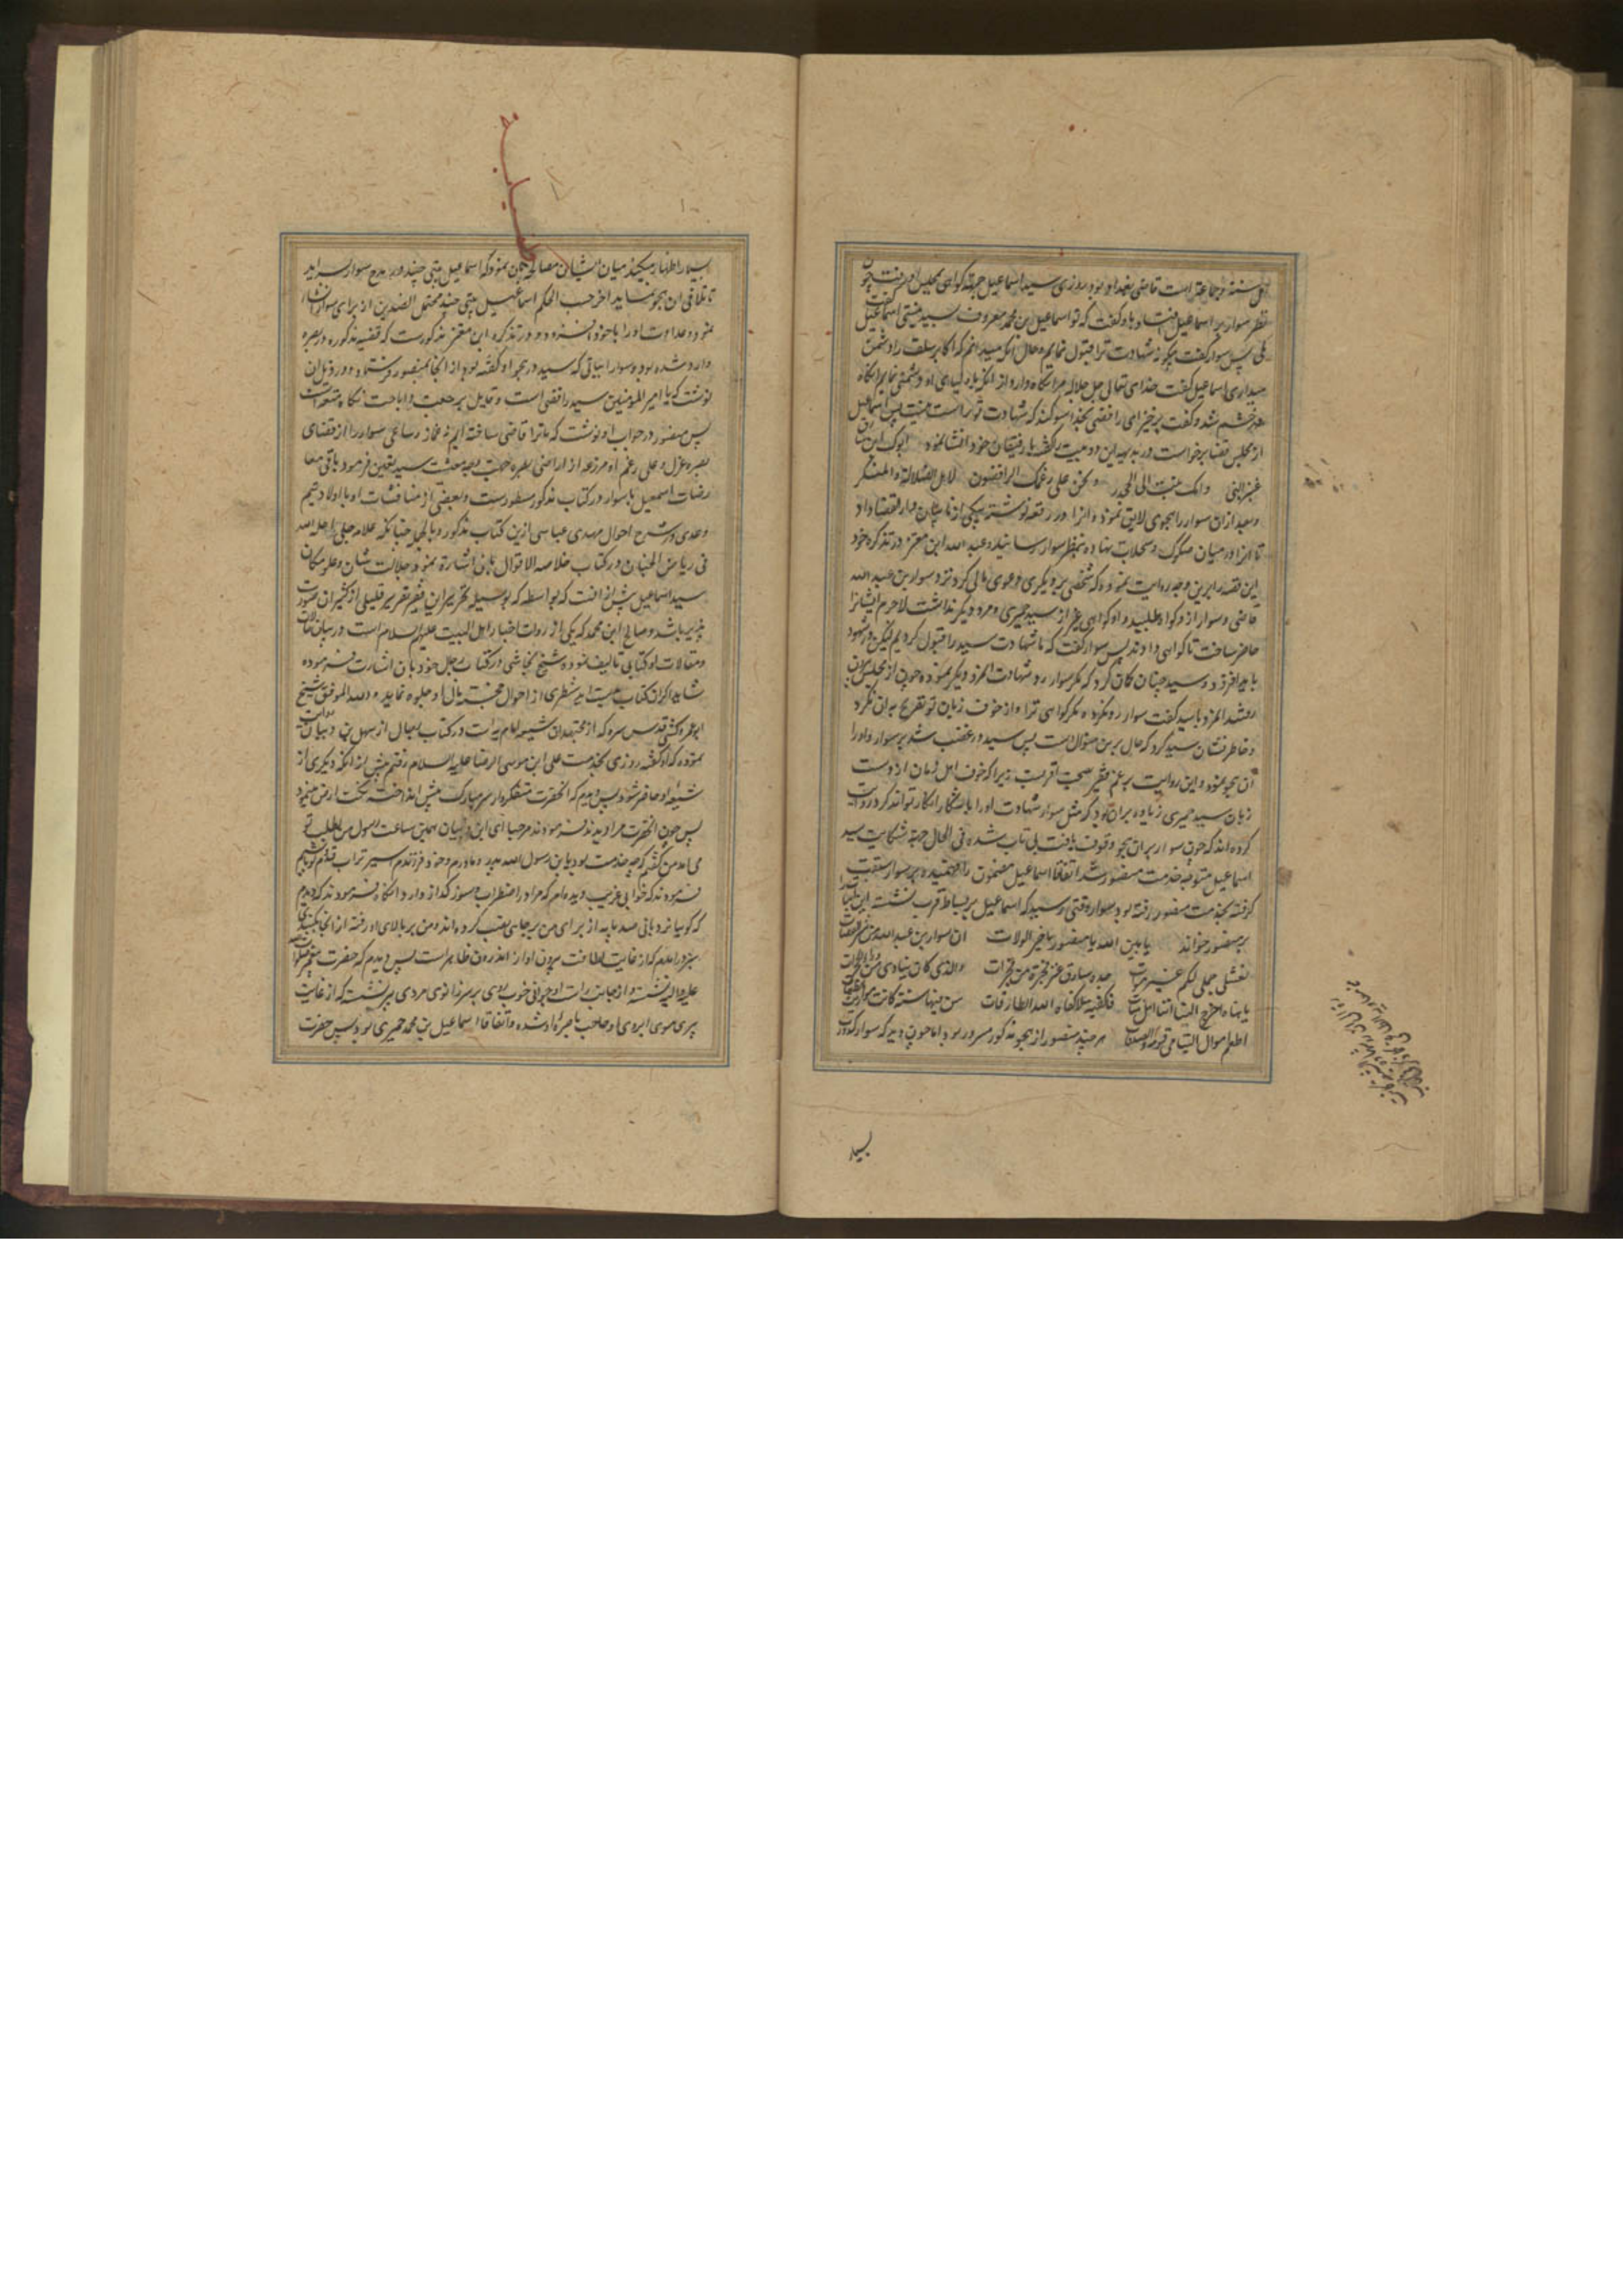 اهل سنه و جماعة است قاضی بغداد بود روزی سید اسماعیل جهة گواهی بمجلس او رفت چون
نظر سوار بر اسماعیل افتاد باو گفت که تو اسماعیل بن محمد معروف بسید نیستی اسماعیل گفت
بلی پس سوار گفت چگونه شهادت ترا قبول نمایم و حال آنکه میدانم که اکابر سلف را دشمن
میداری اسماعیل گفت خدای تعالی جل جلاله مرا نگاه دارد از آنکه با اولیای او دشمنی نمایم آنگاه
سوار بخشم شد و گفت برخیز ای رافضی بخدا سوگند که شهادت تو راست نیست پس اسماعیل
از مجلس قضا برخواست و در بدیهه این دو بیت گفته با رفیقان خود انشا نمود ابوک ابن سارق
عنز النبی وامک بنت ابی الجحدر ونحن علی رغمک الرافضون لاهل الضلالة والمنکر
و بعد از آن سوار را هجوی لایق نموده و آنرا در رقعه نوشته بیکی از نایبان دار القضا داد
تا آنرا در میان صکوک و سجلات نهاده بنظر سوار رسانید و عبد الله ابن معتز در تذکره خود
این قصه را برین وجه روایت نموده که شخصی بر دیگری دعوی مالی کرد نزد سوار بن عبد الله
قاضی و سوار از و گواه طلبید و او گواهی غیر از سید حمیری و مرد دیگر نداشت لاجرم ایشانرا
حاضر ساخت تا گواهی دادند پس سوار گفت که ما شهادت سید را قبول کردیم لیکن در شهود
باید افزود و سید چنان گمان کرد که مگر سوار رد شهادت آنمرد دیگر نموده چون از مجلس بیرون
رفتند آنمرد با سید گفت سوار رد نکرده مگر گواهی ترا و از خوف زبان تو تصریح بآن نکرد
و خاطر نشان سید کرد که حال برین منوال است پس سید در غضب شد بر سوار و او را
آن هجو نمود و این روایت بزعم فقیر بصحت اقربست زیرا که خوف اهل زمان از دست
زبان سید حمیری زیاده بران بود که مثل سوار شهادت او را باستکار انکار تواند کرد و روایت
کرده اند که چون سوار بران هجو وقوف یافت بی تاب شده فی الحال جهة شکایت سید
اسماعیل متوجه خدمت منصور شد اتفاقا اسماعیل مضمون را فهمیده بر سوار سبقت
گرفته بخدمت منصور رفته بود سوار وقتی رسید که اسماعیل بر بساط قرب نشسته این ابیات را
بر منصور خواند یا امین الله یا منصور یا خیر الولات ان سوار بن عبد الله من شر القضات
نعثلی جملی لکم غیر موات جده سارق عنز فجرة من فجرات والذی کان ینادی من وراء الحجرات
یا هناه اخرج الینا اننا اهل هنات فاکفنیه لا کفاه الله الطارقات سن فینا سنة کانت مواریث الطغات
اطعم اموال الیتامی قومه والصدقات هر چند منصور از هجو مذکور مسرور بود اما چون دید که سوار کدورت
بسیار
بسیار اظهار میکند میان ایشان مصالحه چنان نمود که اسماعیل بیتی چند در مدح سوار بسراید
تا تلافی آن هجو نماید آخر حسب الحکم اسماعیل بیتی چند محتمل الضدین از برای سوار انشا
نمود و عداوت او را با خود افزود و در تذکره ابن معتز مذکورست که قضیه مذکوره در بصره
وارد شده بود و سوار ابیاتی که سید در هجو او گفته بود از آنجا بمنصور فرستاد و در ذیل آن
نوشت که یا امیر المؤمنین سید رافضی است و قایل برجعت و اباحت نکاه متعه است
پس منصور در جواب او نوشت که ما ترا قاضی ساخته ایم نه غماز و ساعی سوار را از قضای
بصره عزل و علی رغم او مزرعه از اراضی بصره جهت وجه معیشت سید تعیین فرمود باقی معا
رضات اسمعیل با سوار در کتاب مذکور مسطورست و بعضی از مناقشات او با اولاد تیم
و عدی در شرح احوال مهدی عباسی ازین کتاب مذکور و بالجمله چنانکه علامه حلی احله الله
فی ریاض الجنان در کتاب خلاصه الاقوال بآن اشارة نموده جلالت شان و علو مکان
سید اسماعیل بیش از آنست که بواسطه که بوسیله تحریر این فقیر تقریر قلیلی از کثیر آن صورت
پذیر باشد و صالح ابن محمد که یکی از روات اخبار اهل البیت علیهم السلام است در بیان حالات
و مقالات او کتابی تالیف نموده و شیخ نجاشی در کتاب رجال خود بآن اشارت فرموده
شاید اگر آن کتاب بدست آید شطری از احوال خجسته مآل او جلوه نماید و الله الموفق شیخ
ابو عمرو کشی قدس سره که از مجتهدان شیعه امامیه است در کتاب رجال از سهل بن ذبیان روایت
نموده که او گفته روزی بخدمت علی ابن موسی الرضا علیه السلام رفتم پیش از آنکه دیگری از
شیعه او حاضر شود پس دیدم که آنحضرت متفکروار سر مبارک پیش انداخته نکت ارض مینمود
پس چون آنحضرت مرا دید فرمودند مرحبا ای ابن ذبیان همین ساعت رسول من بطلب تو
می آمد من گفتم که چه خدمت بود یا بن رسول الله پدر و مادرم و خود فرزندم اسیر تراب قدوم تو باشیم
فرمودند که خوابی غریب دیده ام که مرا در اضطراب و سوز گداز دارد آنگاه فرمودند که دیدم
که گویا نردبانی صد پایه از برای من بر جای نصب کرده اند و من بر بالای او رفته از آنجا بگنبدی
سبز در آمدم که از غایت لطافت بیرون او از اندرون ظاهر است پس دیدم که حضرت پیغمبر صلوات
علیه و آله نشسته و از جانب راست او جوانی خوب روی بر سر زانوی مردی پیر نشسته که از غایت
پیری موی ابروی او حاجب باصره او شده و اتفاقا اسماعیل بن محمد حمیری بود پس حضرت